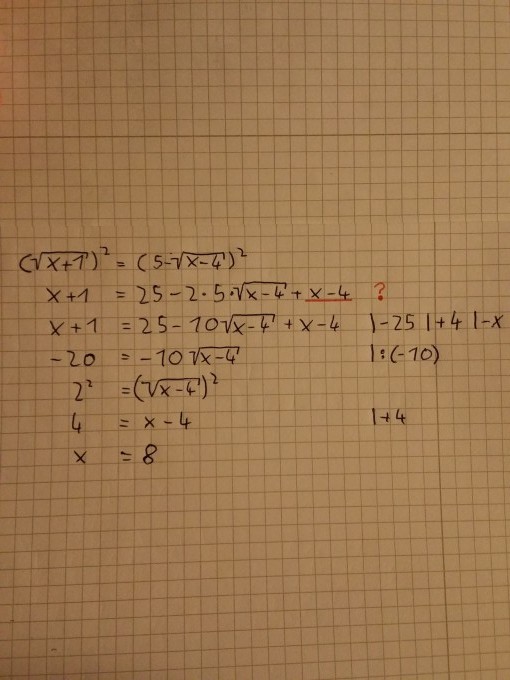 (√x+1)² = (5-√x-4)²
x+1 = 25-2·5·√x-4 + x-4 ?
x+1 = 25-10√x-4 + x-4 |-25 |+4 |-x
-20 = -10√x-4 |:(-10)
2² = (√x-4)²
4 = x-4 |+4
x = 8